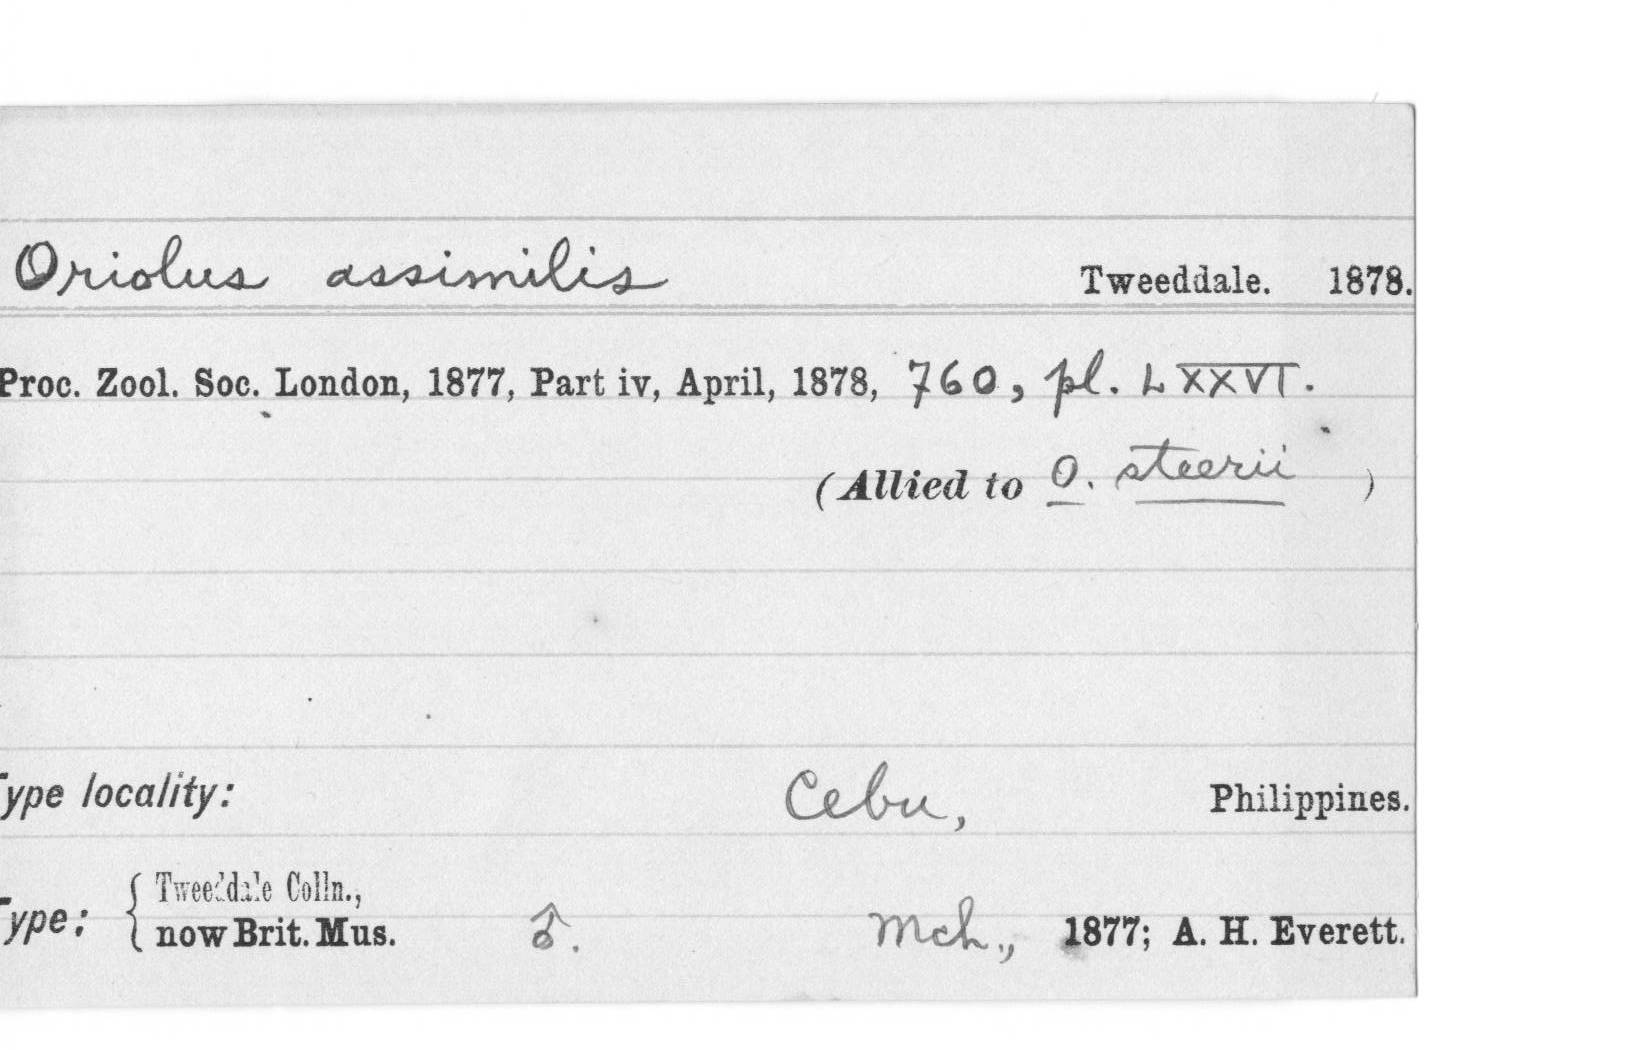 Oriolus assimilis Tweeddale. 1878.
Proc. Zool. Soc. London, 1877, Part iv, April, 1878, 760, pl. LXXVI.
(Allied to O. steerii )
Type locality: Cebu, Philippines.
Tweeddale Colln.,
Type: { now Brit. Mus. ♂. Mch., 1877; A. H. Everett.